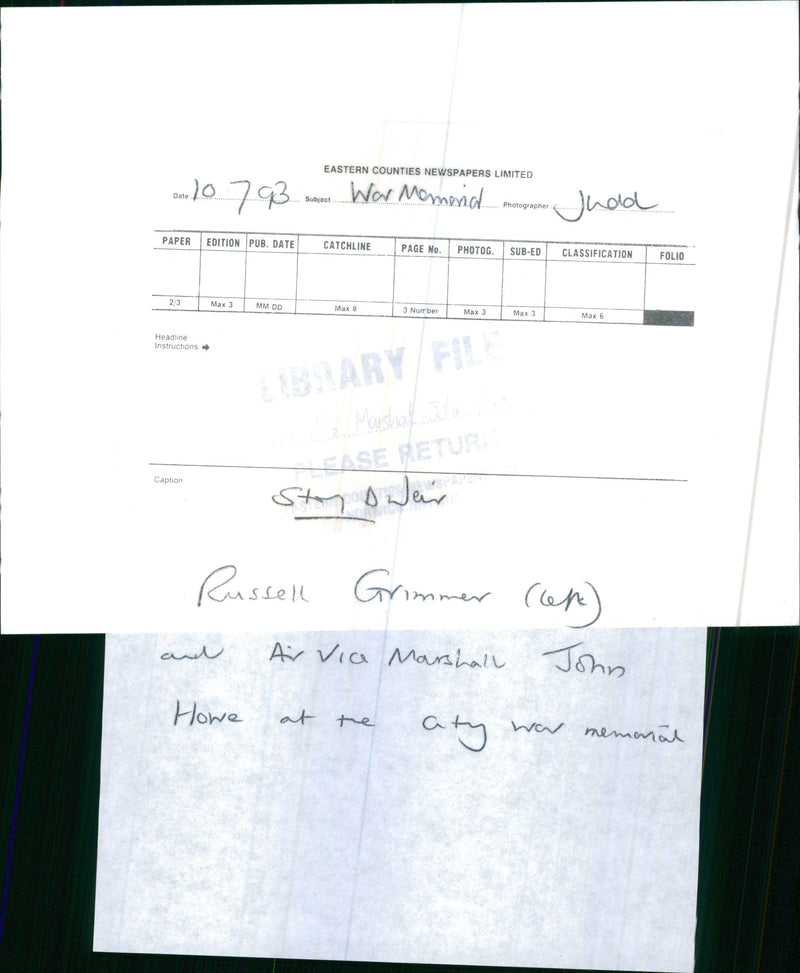 EASTERN COUNTIES NEWSPAPERS LIMITED
Date 10 7 93 Subject War Memorial Photographer Judd
PAPER EDITION PUB. DATE CATCHLINE PAGE No. PHOTOG. SUB-ED CLASSIFICATION FOLIO
2/3 Max 3 MM DD Max 8 3 Number Max 3 Max 3 Max 6
Headline
Instructions
LIBRARY FILE
Marshal John
PLEASE RETURN
Caption
Story D Weir
EASTERN COUNTIES NEWSPAPERS
NORWICH
Russell Grimmer (left)
and Air Vice Marshall John
Howe at the city war memorial